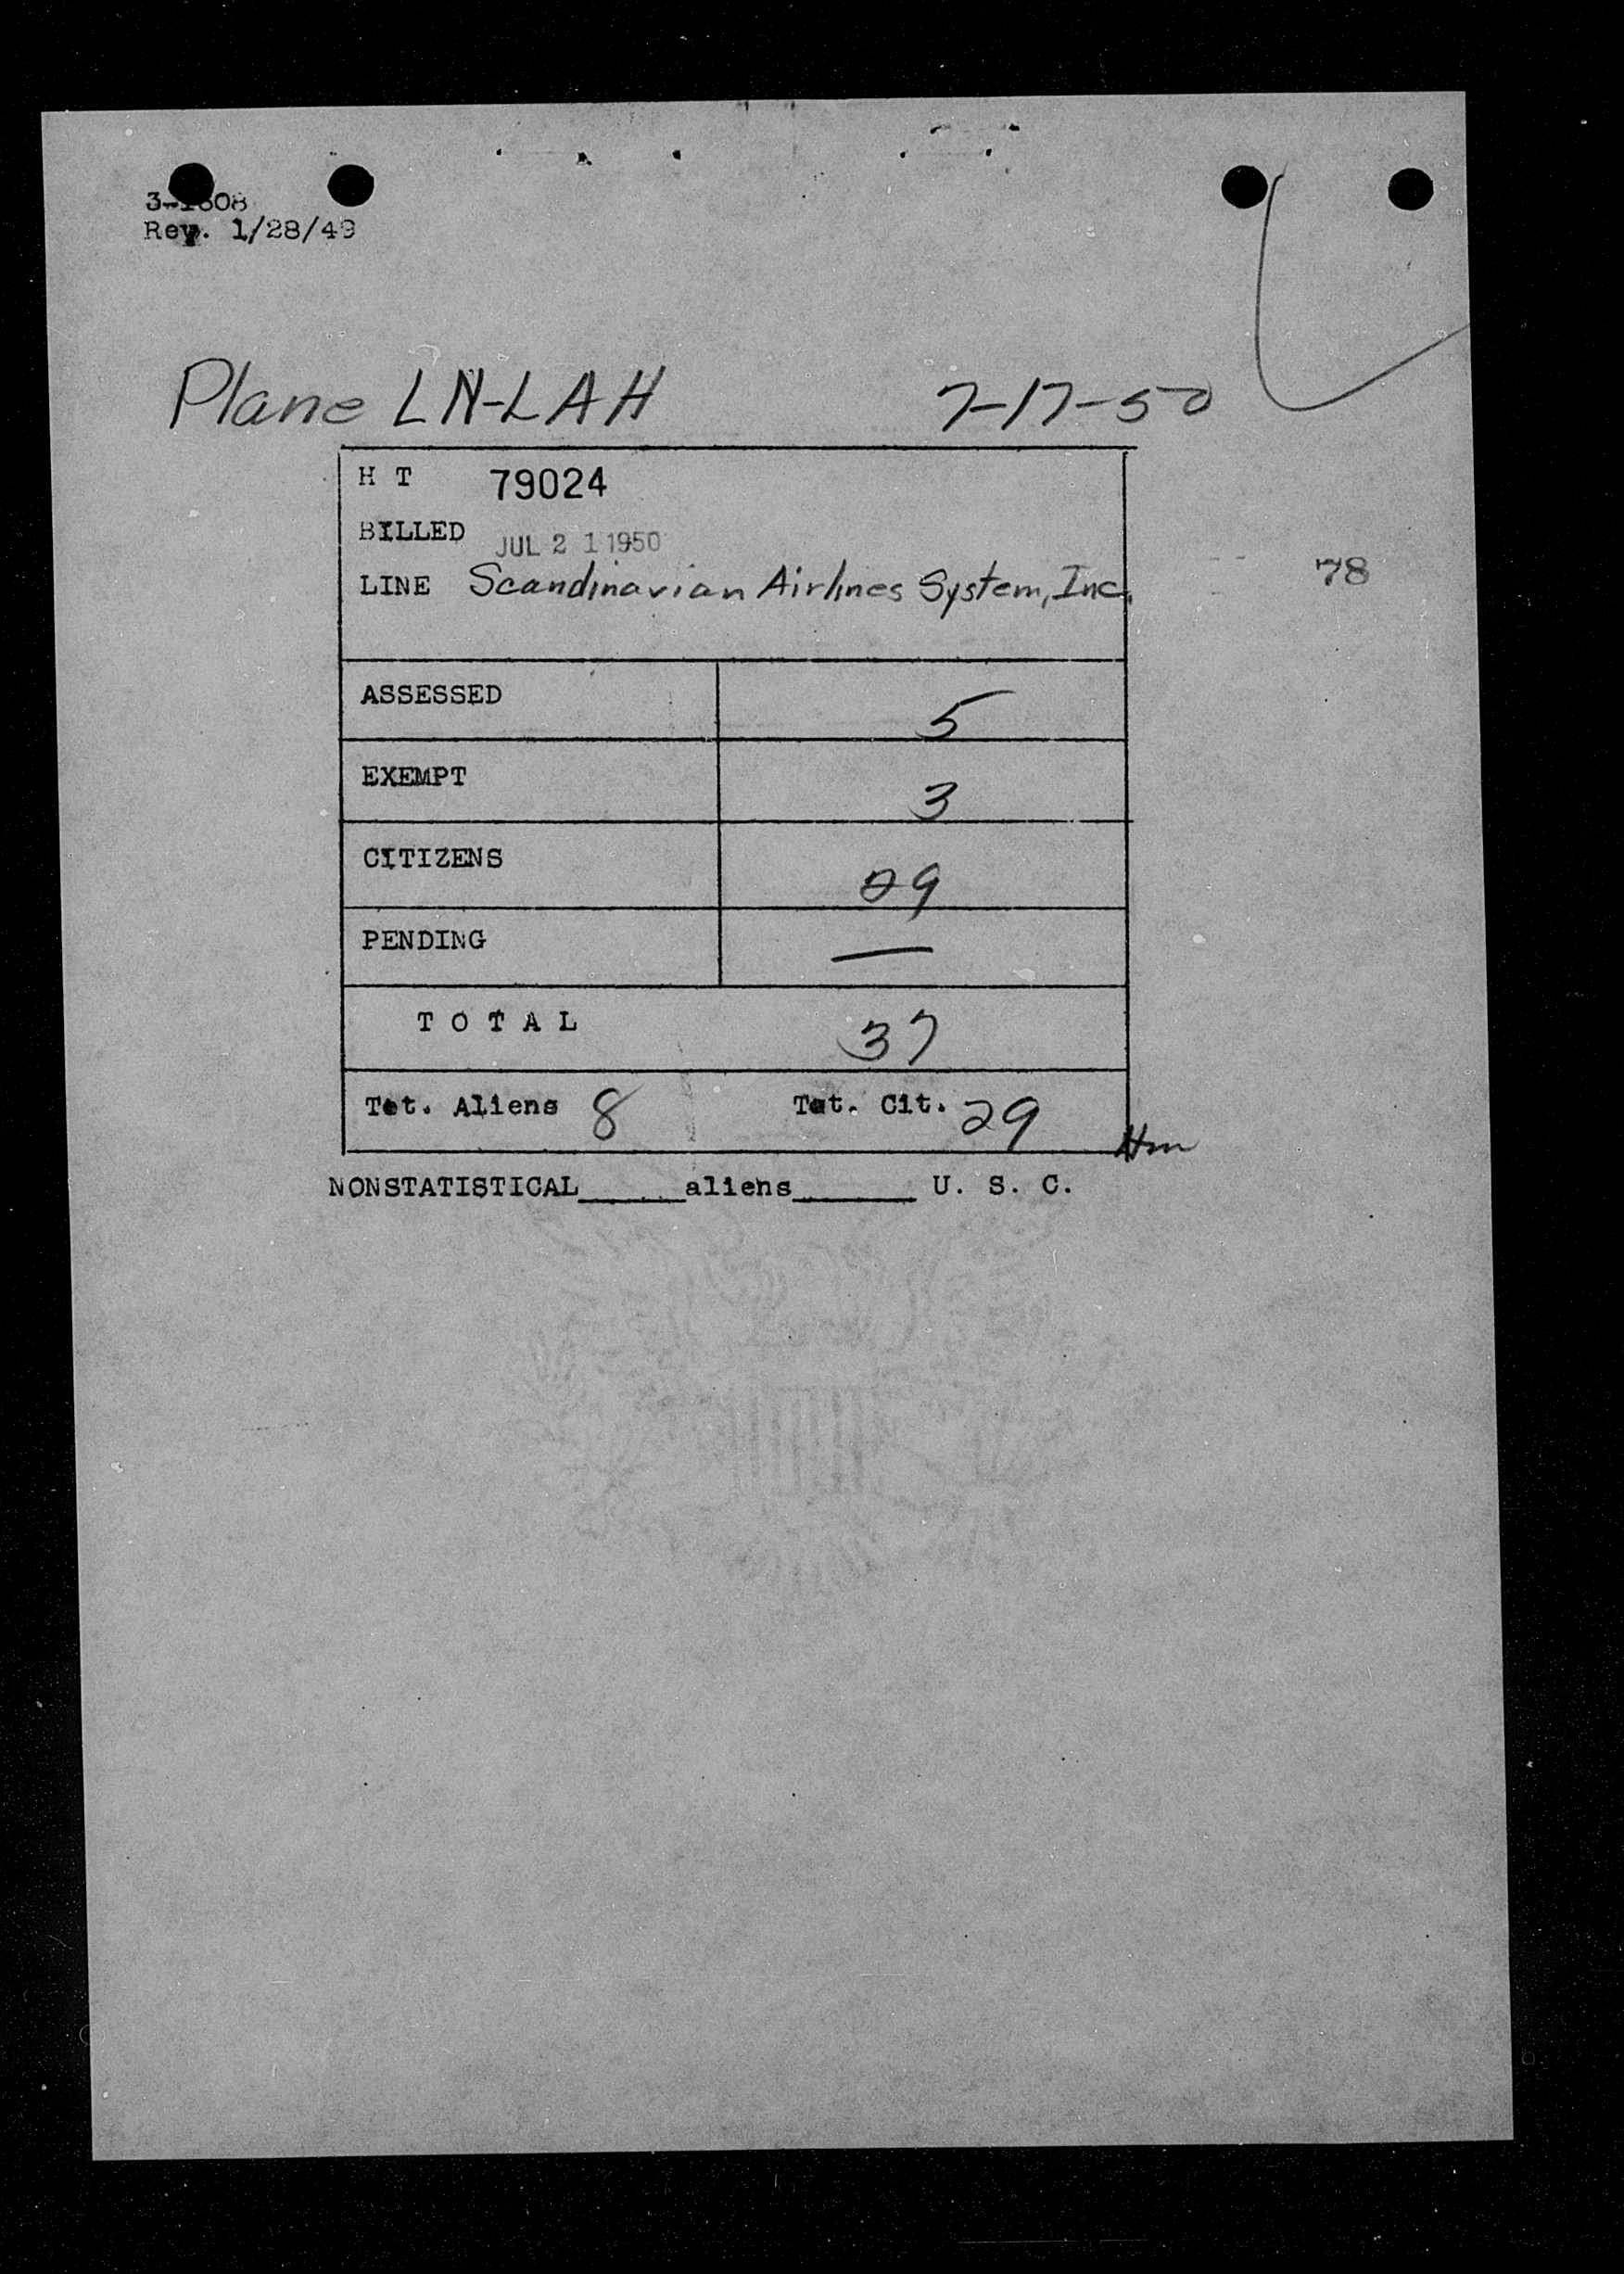 Rev. 1/28/49
Plane LN-LAH 7-17-50
H T 79024
BILLED JUL 21 1950
LINE Scandinavian Airlines System, Inc.
78
ASSESSED 5
EXEMPT 3
CITIZENS 29
PENDING —
T O T A L 37
Tot. Aliens 8 Tot. Cit. 29
NONSTATISTICAL______aliens_______ U. S. C.